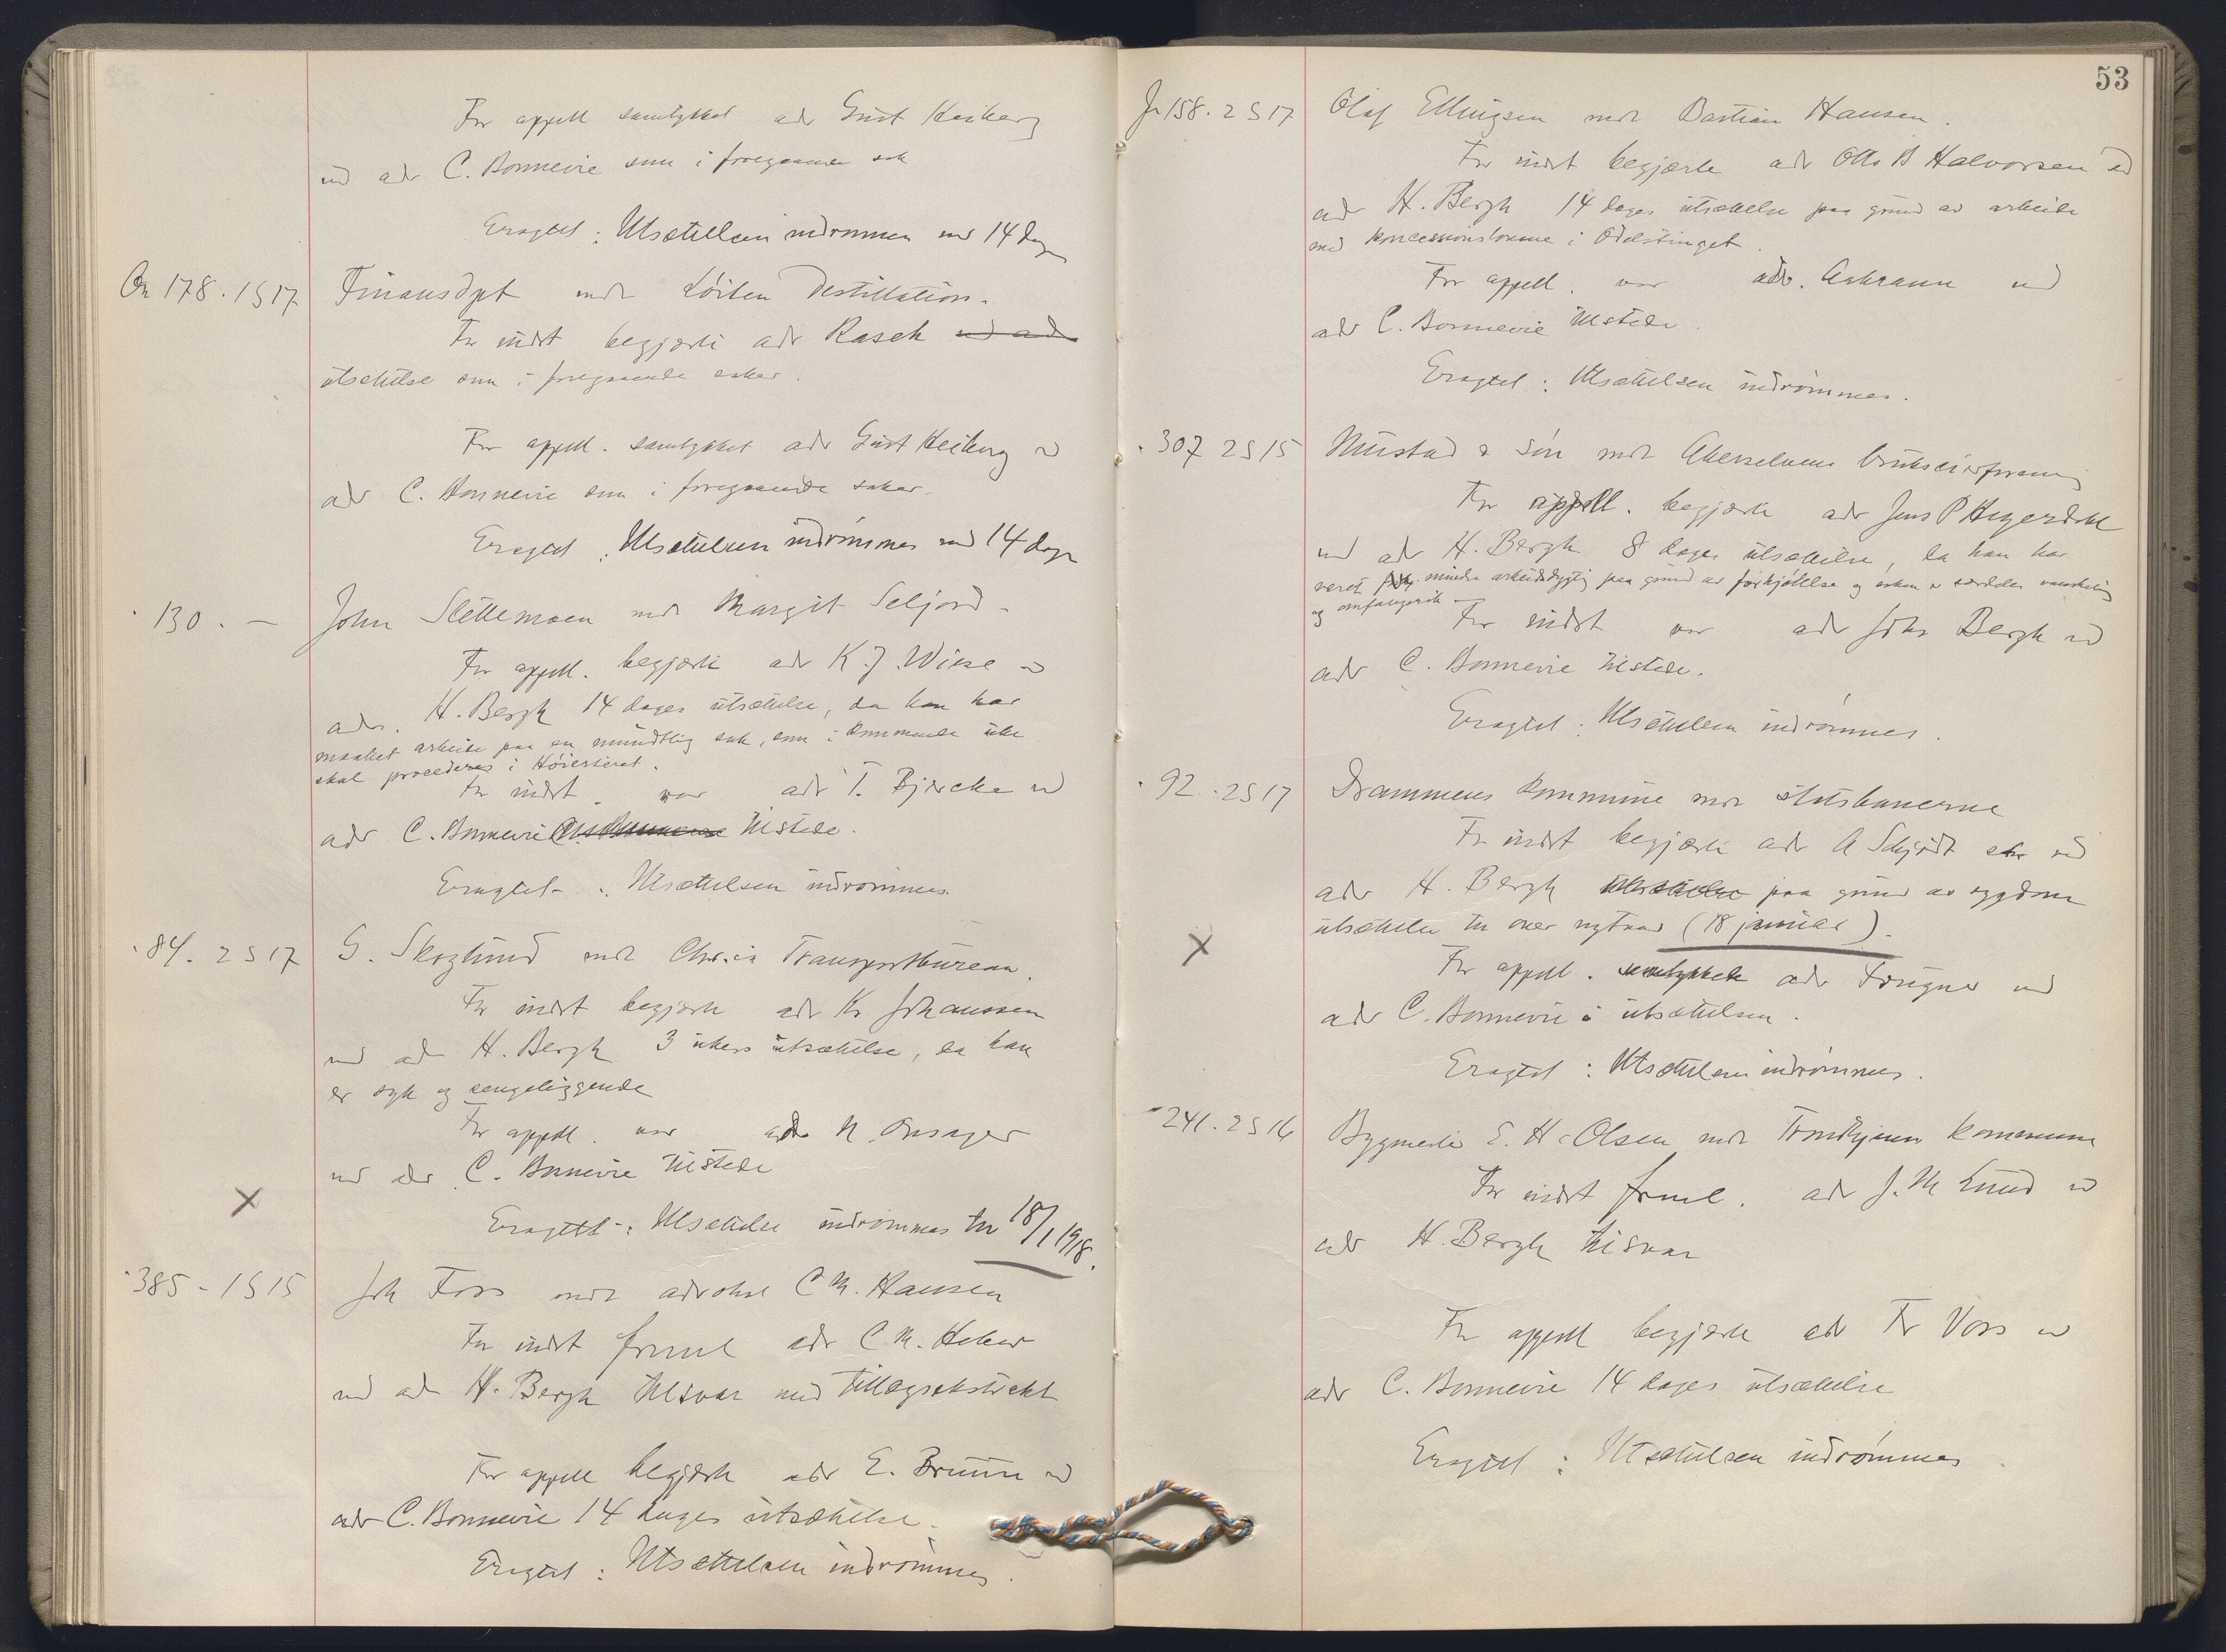 For appell samtykket adv Gust Heiberg
ved adv C. Bonnevie som i foregaaende sak
Eragtet: Utsættelsen indrømmes med 14 dage
Ov 178. 1 S 17 Finansdpt mot Løiten Destillation.
For indst begjærte adv Rasch
utsættelse som i foregaaende saker.
For appell. samtykket adv Gust Heiberg v
adv C. Bonnevie som i foregaaende saker.
Eragtet: Utsættelsen indrømmes med 14 dage
130. — John Slettemoen mot Margit Seljord.
For appell. begjærte adv K. J. Wiese v
adv. H. Bergh 14 dages utsættelse, da han har
maattet arbeide paa en mundtlig sak, som i kommende uke
skal procederes i Høiesteret.
For indst. var adv T. Bjercke v
adv C. Bonnevie tilstede.
Eragtet: Utsættelsen indrømmes.
84. 2 S 17 G. Skoglund mot Chr.ia Transportbureau.
For indst begjærte adv Kr Johanssen
ved adv H. Bergh 3 ukers utsættelse, da han
er syk og sengeliggende
For appell. var adv N. Onsager
ved adv C. Bonnevie tilstede
X
Eragtet: Utsættelse indrømmes til 18/1 1918.
385 - 1 S 15 Joh Foss mot advokat C M. Hansen
For indst freml adv C M. Heber
ved adv H. Bergh tilsvar med tillægsekstrakt
For appell begjærte adv E. Bruun v
adv C. Bonnevie 14 dages utsættelse.
Eragtet: Utsættelsen indrømmes.
53
Jr 158. 2 S 17 Olaf Ellingsen mot Bastian Hansen.
For indst begjærte adv Otto B Halvorsen ved
adv H. Bergh 14 dages utsættelse paa grund av arbeide
med koncessionslovene i Odelstinget.
For appell. var adv. Aakrann ved
adv C. Bonnevie tilstede.
Eragtet: Utsættelsen indrømmes.
307 2 S 15 Mustad & Søn mot Akerselvens brukseierforening
For appell. begjærte adv Jens P Heyerdahl
ved adv H. Bergh 8 dages utsættelse, da han har
været mindre arbeidsdygtig paa grund av forkjølelse og saken er særdeles vanskelig
og omfangsrik —
For indst var adv Johs Bergh ved
adv C. Bonnevie tilstede.
Eragtet: Utsættelsen indrømmes.
92. 2 S 17 Drammens kommune mot statsbanerne
For indst begjærte adv A Schjødt ved
adv H. Bergh paa grund av sygdom
utsættelse til over nytaar (18 januar).
X
For appell. samtykket adv Fougner ved
adv C. Bonnevie i utsættelsen.
Eragtet: Utsættelsen indrømmes.
241. 2 S 16 Bygmester E. H. Olsen mot Trondhjems kommune
For indst freml. adv J. M Lund v
adv H. Bergh tilsvar
For appell begjærte adv Fr Voss v
adv C. Bonnevie 14 dages utsættelse
Eragtet: Utsættelsen indrømmes